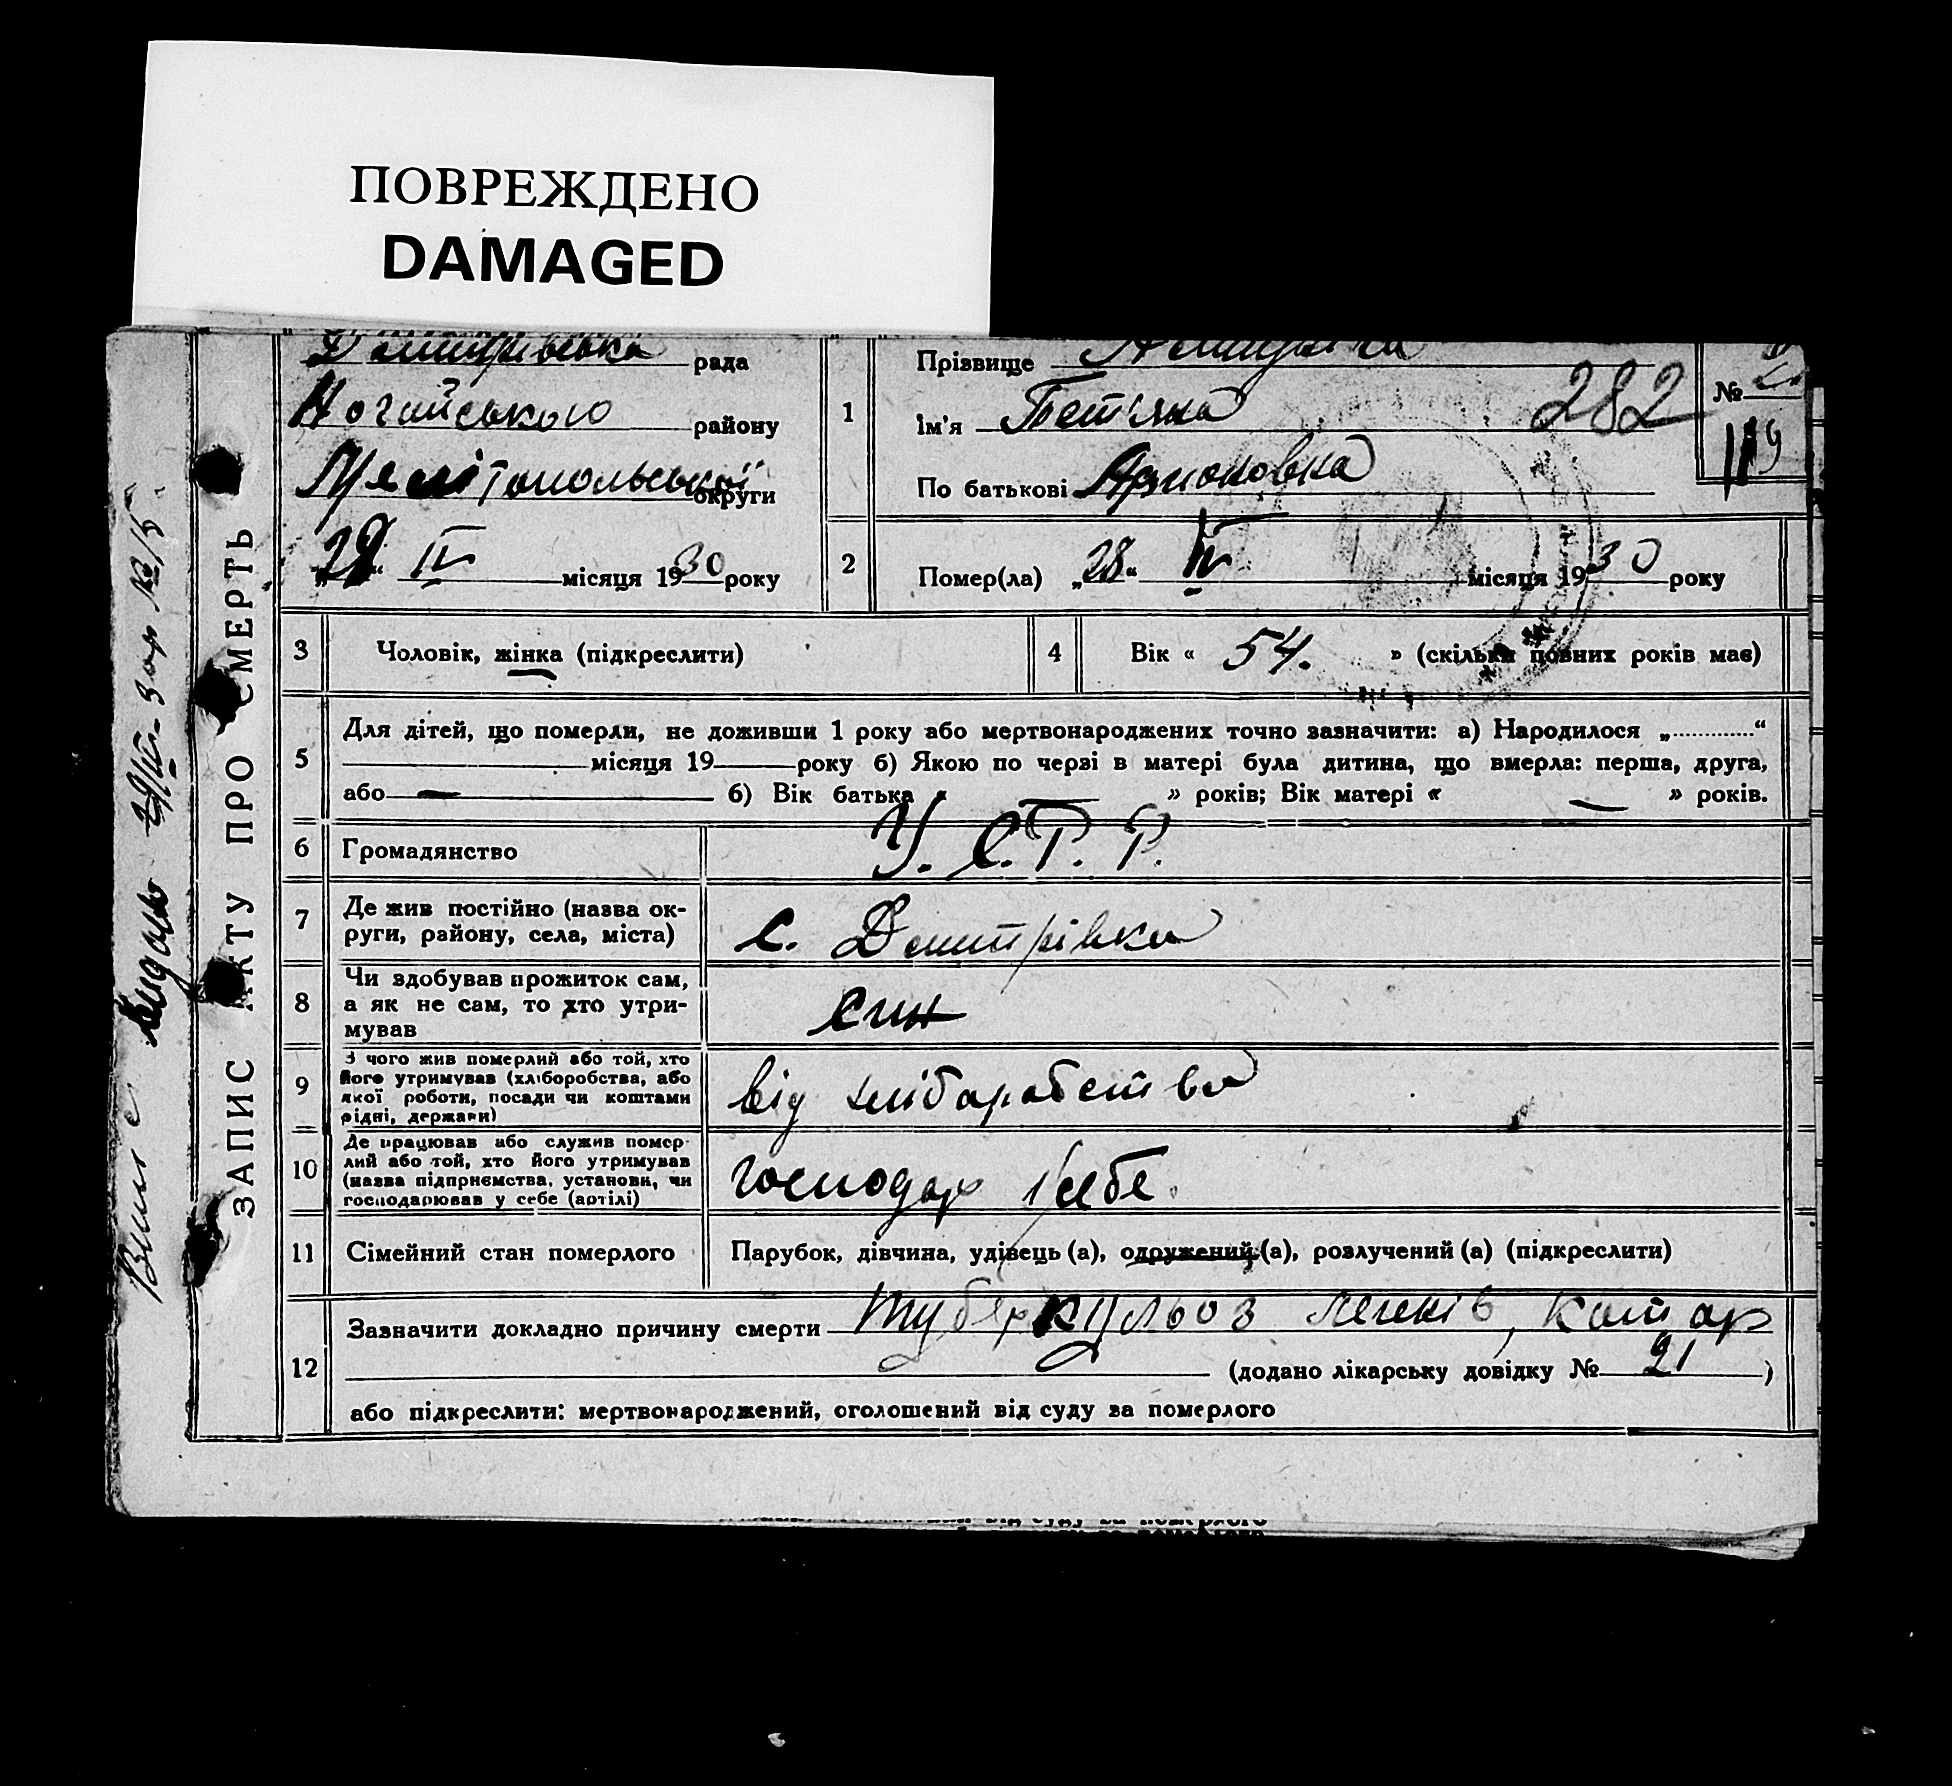 ПОВРЕЖДЕНО
DAMAGED
Дмитрівська рада
Ногайського району
Мелітопольської округи
„28“ IV місяця 1930 року
ЗАПИС АКТУ ПРО СМЕРТЬ
1
Прізвище
Ім'я
282
По батькові
№
119
2
Помер(ла) „28“ IV місяця 1930 року
3 Чоловік, жінка (підкреслити)
4 Вік « 54. » (скільки повних років має)
5 Для дітей, що померли, не доживши 1 року або мертвонароджених точно зазначити: а) Народилося „............“
місяця 19 року б) Якою по черзі в матері була дитина, що вмерла: перша, друга,
або — б) Вік батька « — » років; Вік матері « — » років.
6 Громадянство У. С. Р. Р.
7 Де жив постійно (назва ок-
руги, району, села, міста)
с. Дмитрівка
8 Чи здобував прожиток сам,
а як не сам, то хто утри-
мував
син
9 З чого жив померлий або той, хто
його утримував (хліборобства, або
якої роботи, посади чи коштами
рідні, держави)
від хліборобства
10 Де працював або служив помер-
лий або той, хто його утримував
(назва підприємства, установи, чи
господарював у себе (артілі)
господар у себе.
11 Сімейний стан померлого Парубок, дівчина, удівець (а), одружений (а), розлучений (а) (підкреслити)
12 Зазначити докладно причину смерти туберкульоз легенів, катар
(додано лікарську довідку № 21 )
або підкреслити: мертвонароджений, оголошений від суду за померлого